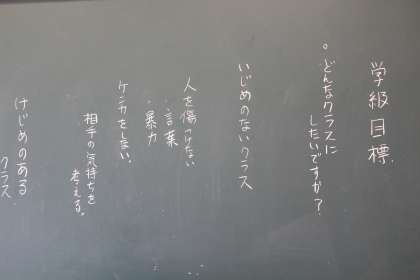 学級目標
。どんなクラスに
したいですか？
いじめのないクラス
人を傷つけない
・言葉
・暴力
ケンカをしない
相手の気持ちを
考える。
けじめのある
クラス